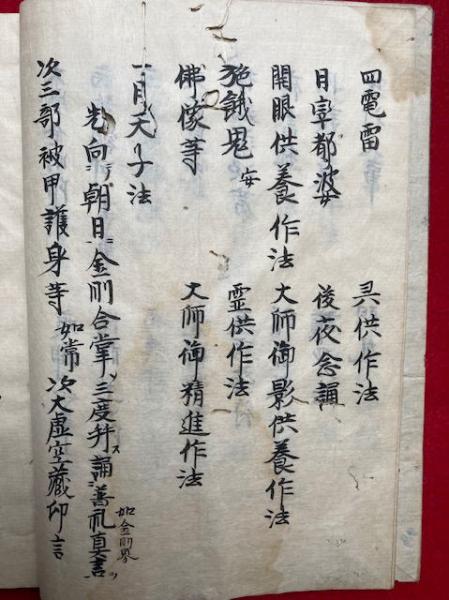 四電雷 具供作法
都婆 後夜念誦
開眼供養作法 大師御影供養作法
施餓鬼安 霊供作法
佛像等 大師御精進作法
一日天子法
先向朝日金剛合掌三度拜誦普礼真言如金剛界
次三部被甲護身等如常次大虚空蔵印言